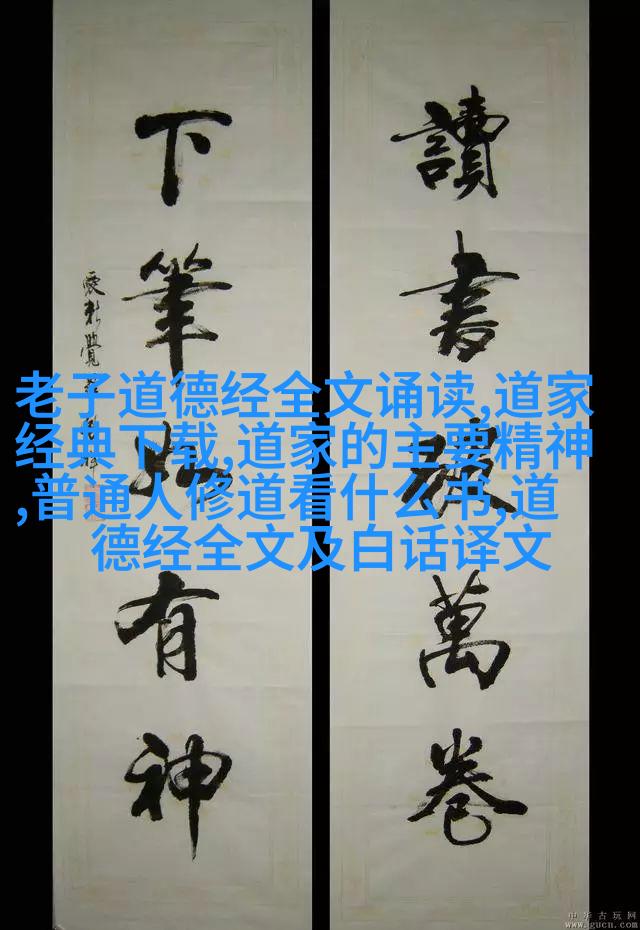 讀書破萬卷
下筆如有神
老子道德经全文诵读,道家
经典下载,道家的主要精神
,普通人修道看什么书,道
德经全文及白话译文
中华古玩网
www.gucn.com